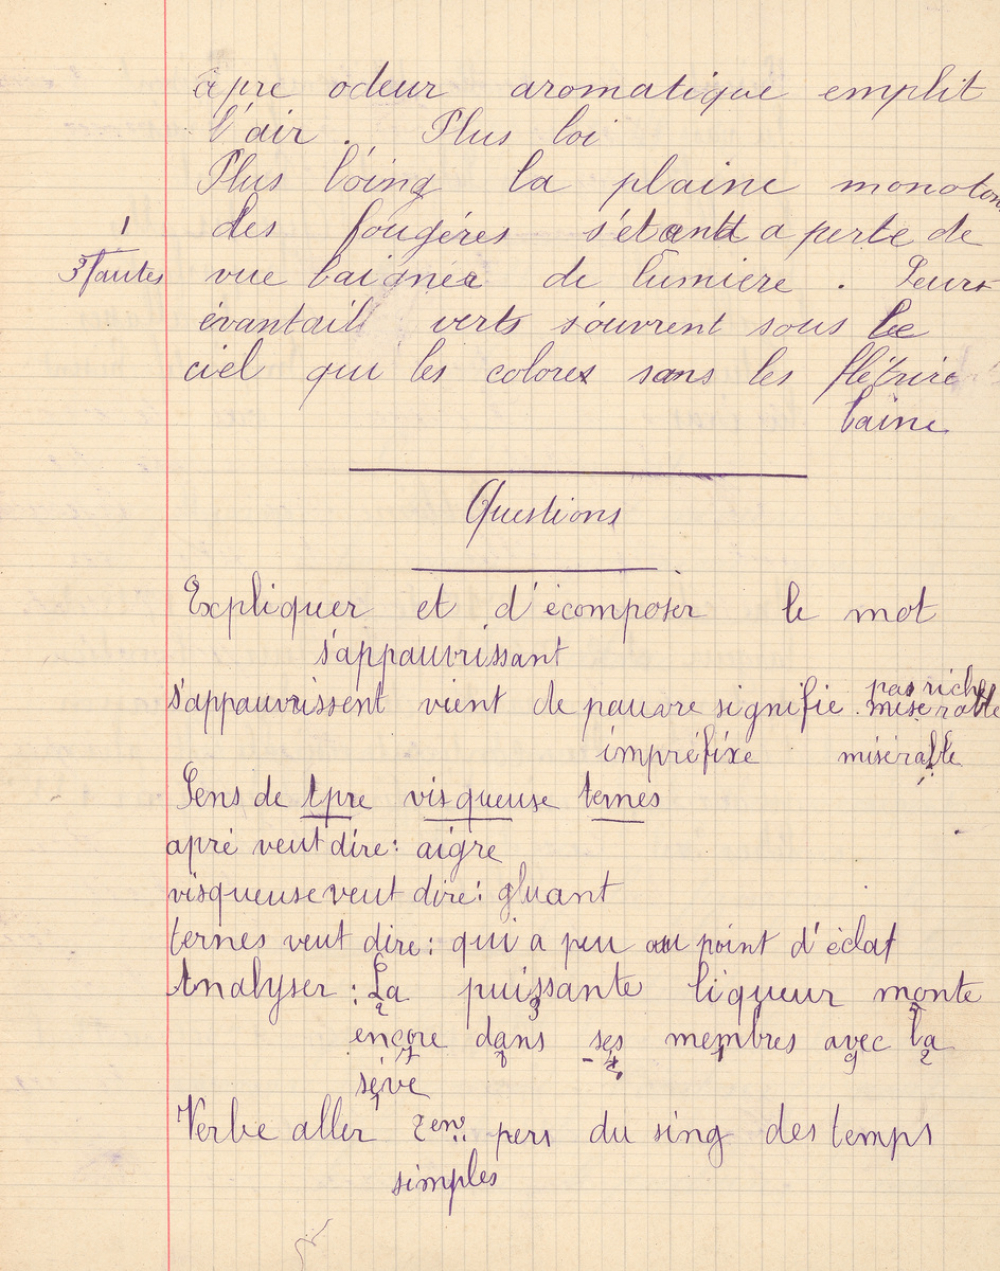 âpre odeur aromatique emplit
l'air. Plus loi
Plus loing la plaine monoton
des fougéres s'étantt a perte de
1
3 fautes
vue baignée de lumière. Leurs
évantaill verts s'ouvrent sous le
ciel qui les colores sans les flétrire
Taine
Questions
Expliquer et d'écomposer le mot
s'appauvrissant
s'appauvrissent vient de pauvre signifie. pas riche
misérable
impréfixe misérable
Sens de Apre visqueuse ternes
apré veut dire: aigre
visqueuse veut dire: gluant
ternes veut dire: qui a peu au point d'éclat
Analyser: La puissante liqueur monte
encore dans ses membres avec la
séve
Verbe aller 2em pers du sing des temps
simples